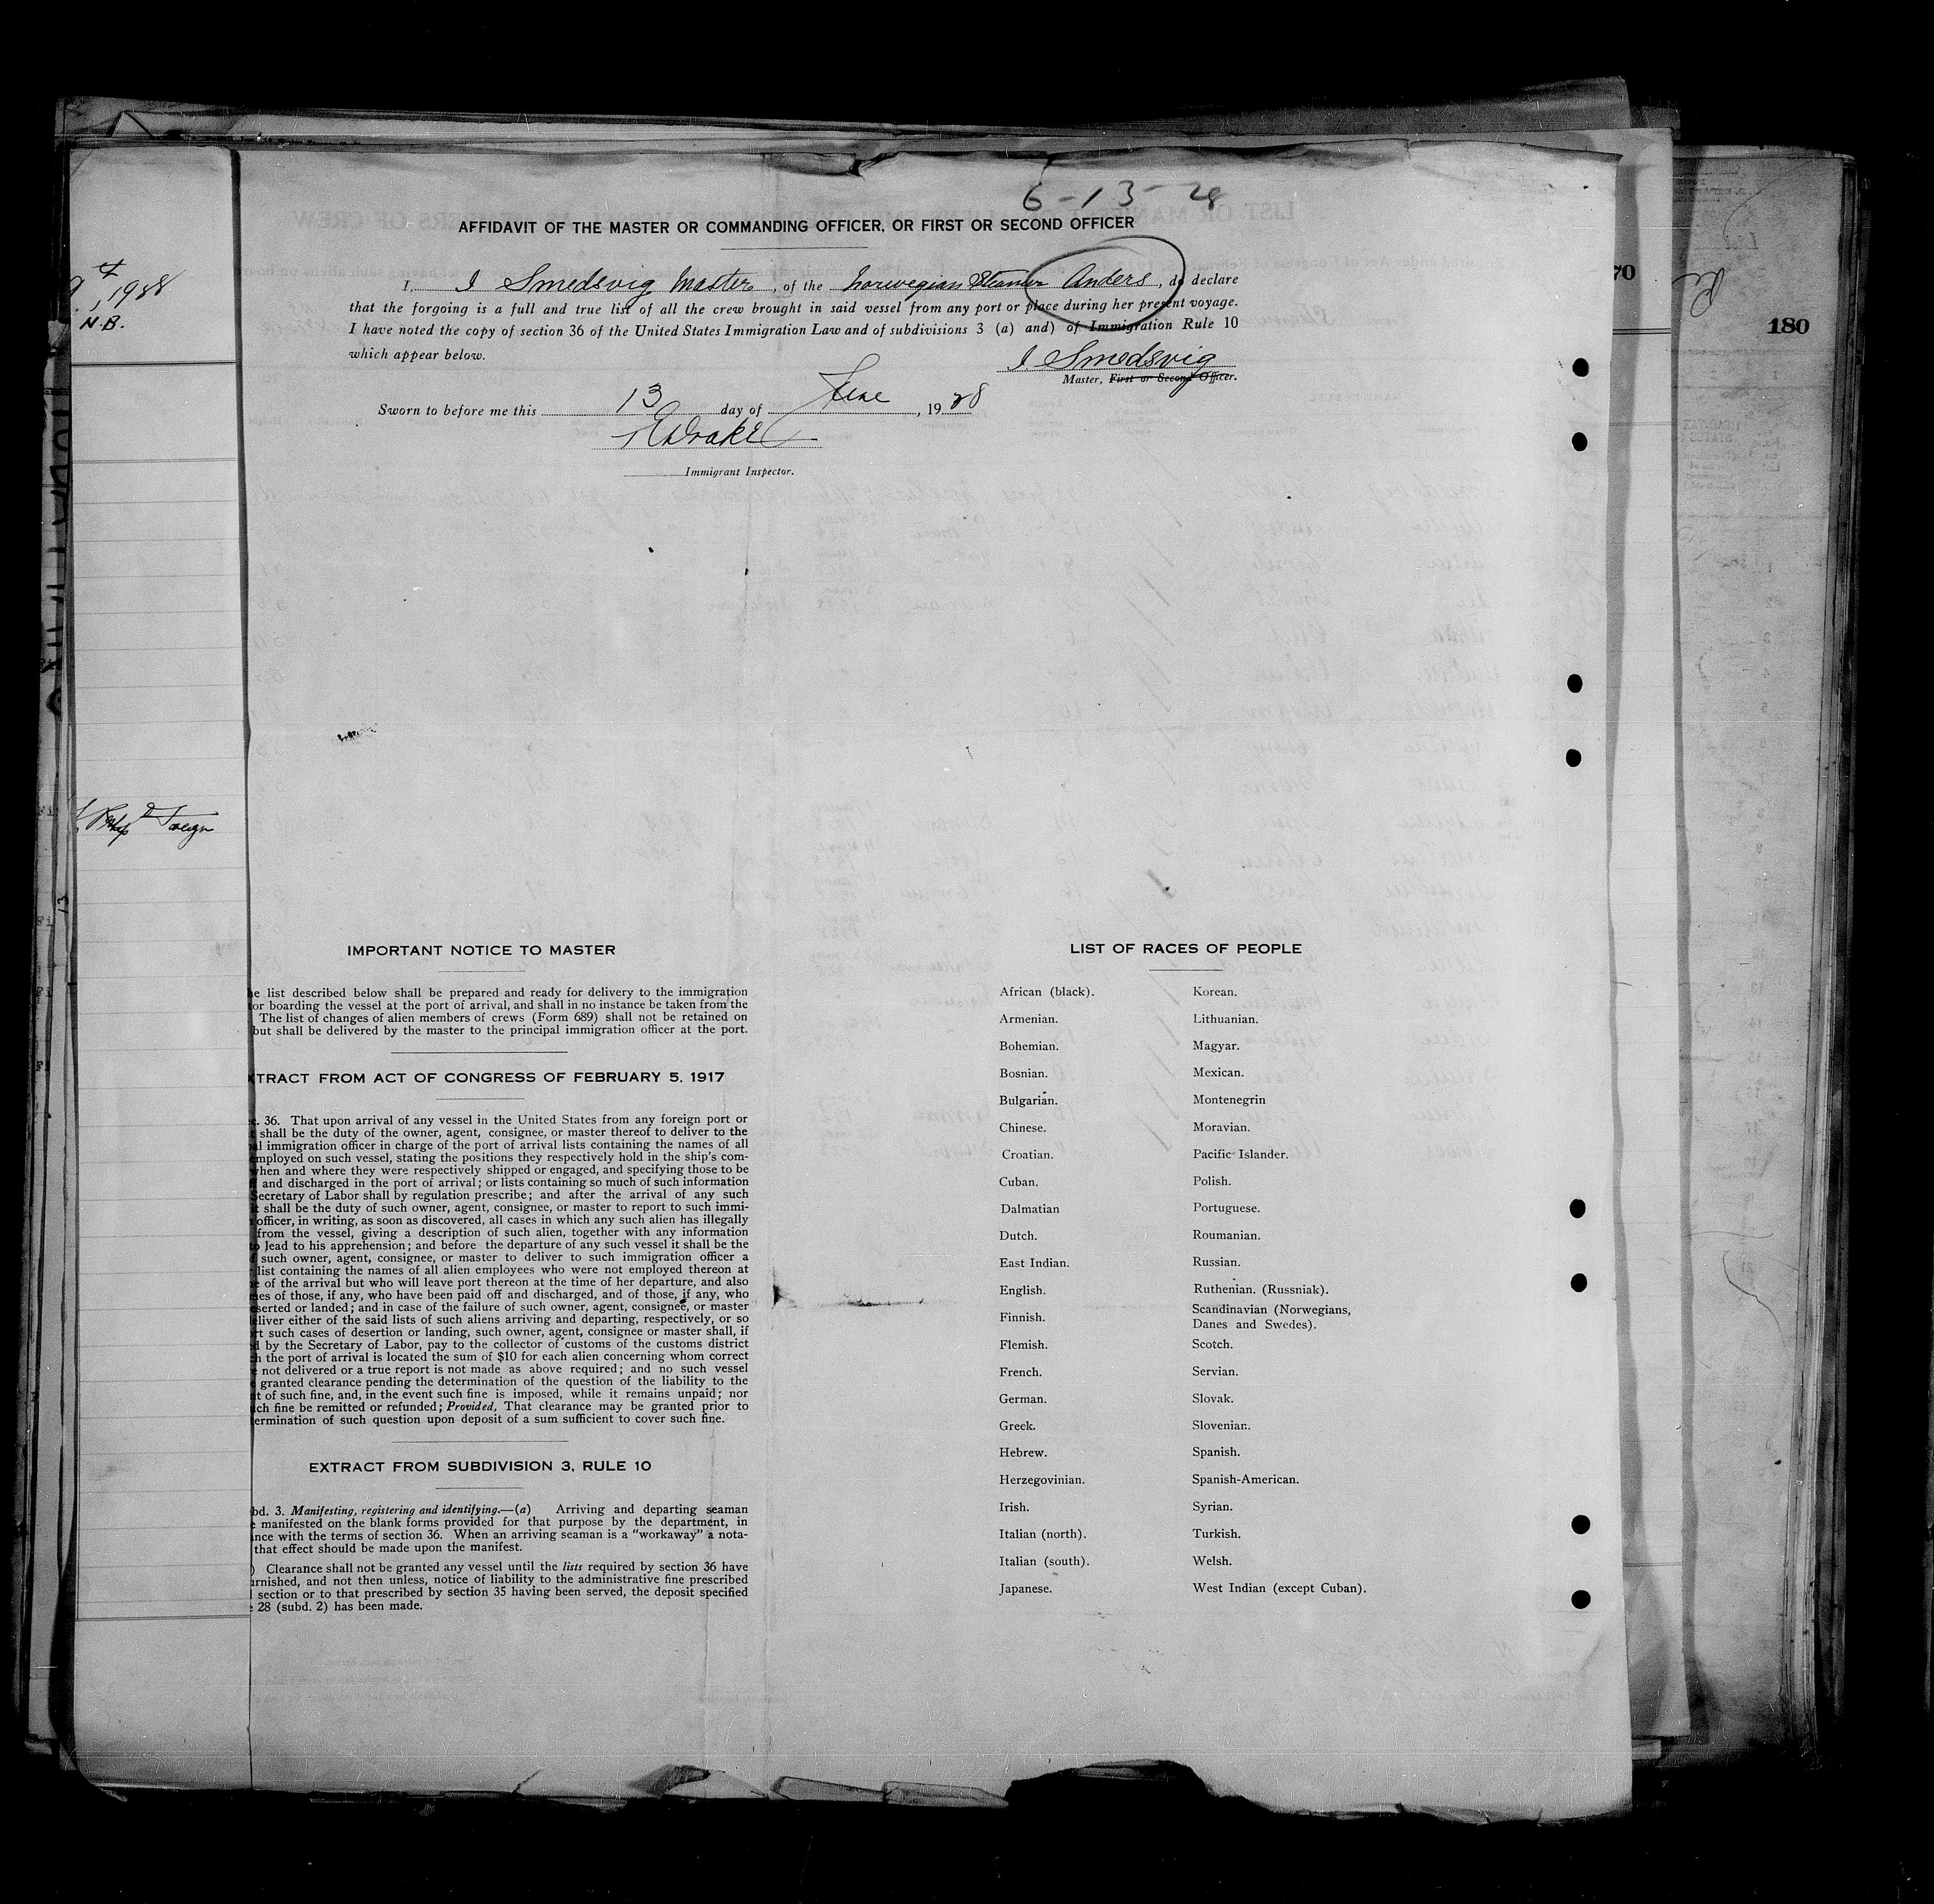 6-13-28
AFFIDAVIT OF THE MASTER OR COMMANDING OFFICER, OR FIRST OR SECOND OFFICER
I, I Smedsvig Master, of the Norwegian Steamer Anders, do declare
that the forgoing is a full and true list of all the crew brought in said vessel from any port or place during her present voyage.
I have noted the copy of section 36 of the United States Immigration Law and of subdivisions 3 (a) and) of Immigration Rule 10
which appear below.
I Smedsvig
Master, First or Second Officer.
Sworn to before me this 13 day of June, 1928
Drake
Immigrant Inspector.
, 1928
N.B.
70
180
Foreign
IMPORTANT NOTICE TO MASTER
he list described below shall be prepared and ready for delivery to the immigration
or boarding the vessel at the port of arrival, and shall in no instance be taken from the
The list of changes of alien members of crews (Form 689) shall not be retained on
but shall be delivered by the master to the principal immigration officer at the port.
TRACT FROM ACT OF CONGRESS OF FEBRUARY 5, 1917
c. 36. That upon arrival of any vessel in the United States from any foreign port or
t shall be the duty of the owner, agent, consignee, or master thereof to deliver to the
al immigration officer in charge of the port of arrival lists containing the names of all
employed on such vessel, stating the positions they respectively hold in the ship's com-
when and where they were respectively shipped or engaged, and specifying those to be
and discharged in the port of arrival; or lists containing so much of such information
Secretary of Labor shall by regulation prescribe; and after the arrival of any such
it shall be the duty of such owner, agent, consignee, or master to report to such immi-
officer, in writing, as soon as discovered, all cases in which any such alien has illegally
from the vessel, giving a description of such alien, together with any information
to lead to his apprehension; and before the departure of any such vessel it shall be the
such owner, agent, consignee, or master to deliver to such immigration officer a
list containing the names of all alien employees who were not employed thereon at
e of the arrival but who will leave port thereon at the time of her departure, and also
mes of those, if any, who have been paid off and discharged, and of those, if any, who
eserted or landed; and in case of the failure of such owner, agent, consignee, or master
eliver either of the said lists of such aliens arriving and departing, respectively, or so
rt such cases of desertion or landing, such owner, agent, consignee or master shall, if
d by the Secretary of Labor, pay to the collector of customs of the customs district
ch the port of arrival is located the sum of $10 for each alien concerning whom correct
not delivered or a true report is not made as above required; and no such vessel
granted clearance pending the determination of the question of the liability to the
t of such fine, and, in the event such fine is imposed, while it remains unpaid; nor
ch fine be remitted or refunded; Provided, That clearance may be granted prior to
ermination of such question upon deposit of a sum sufficient to cover such fine.
EXTRACT FROM SUBDIVISION 3, RULE 10
bd. 3. Manifesting, registering and identifying.—(a) Arriving and departing seaman
e manifested on the blank forms provided for that purpose by the department, in
nce with the terms of section 36. When an arriving seaman is a "workaway" a nota-
that effect should be made upon the manifest.
) Clearance shall not be granted any vessel until the lists required by section 36 have
urnished, and not then unless, notice of liability to the administrative fine prescribed
section or to that prescribed by section 35 having been served, the deposit specified
28 (subd. 2) has been made.
LIST OF RACES OF PEOPLE
African (black). Korean.
Armenian. Lithuanian.
Bohemian. Magyar.
Bosnian. Mexican.
Bulgarian. Montenegrin
Chinese. Moravian.
Croatian. Pacific Islander.
Cuban. Polish.
Dalmatian Portuguese.
Dutch. Roumanian.
East Indian. Russian.
English. Ruthenian. (Russniak).
Finnish. Scandinavian (Norwegians,
Danes and Swedes).
Flemish. Scotch.
French. Servian.
German. Slovak.
Greek. Slovenian.
Hebrew. Spanish.
Herzegovinian. Spanish-American.
Irish. Syrian.
Italian (north). Turkish.
Italian (south). Welsh.
Japanese. West Indian (except Cuban).